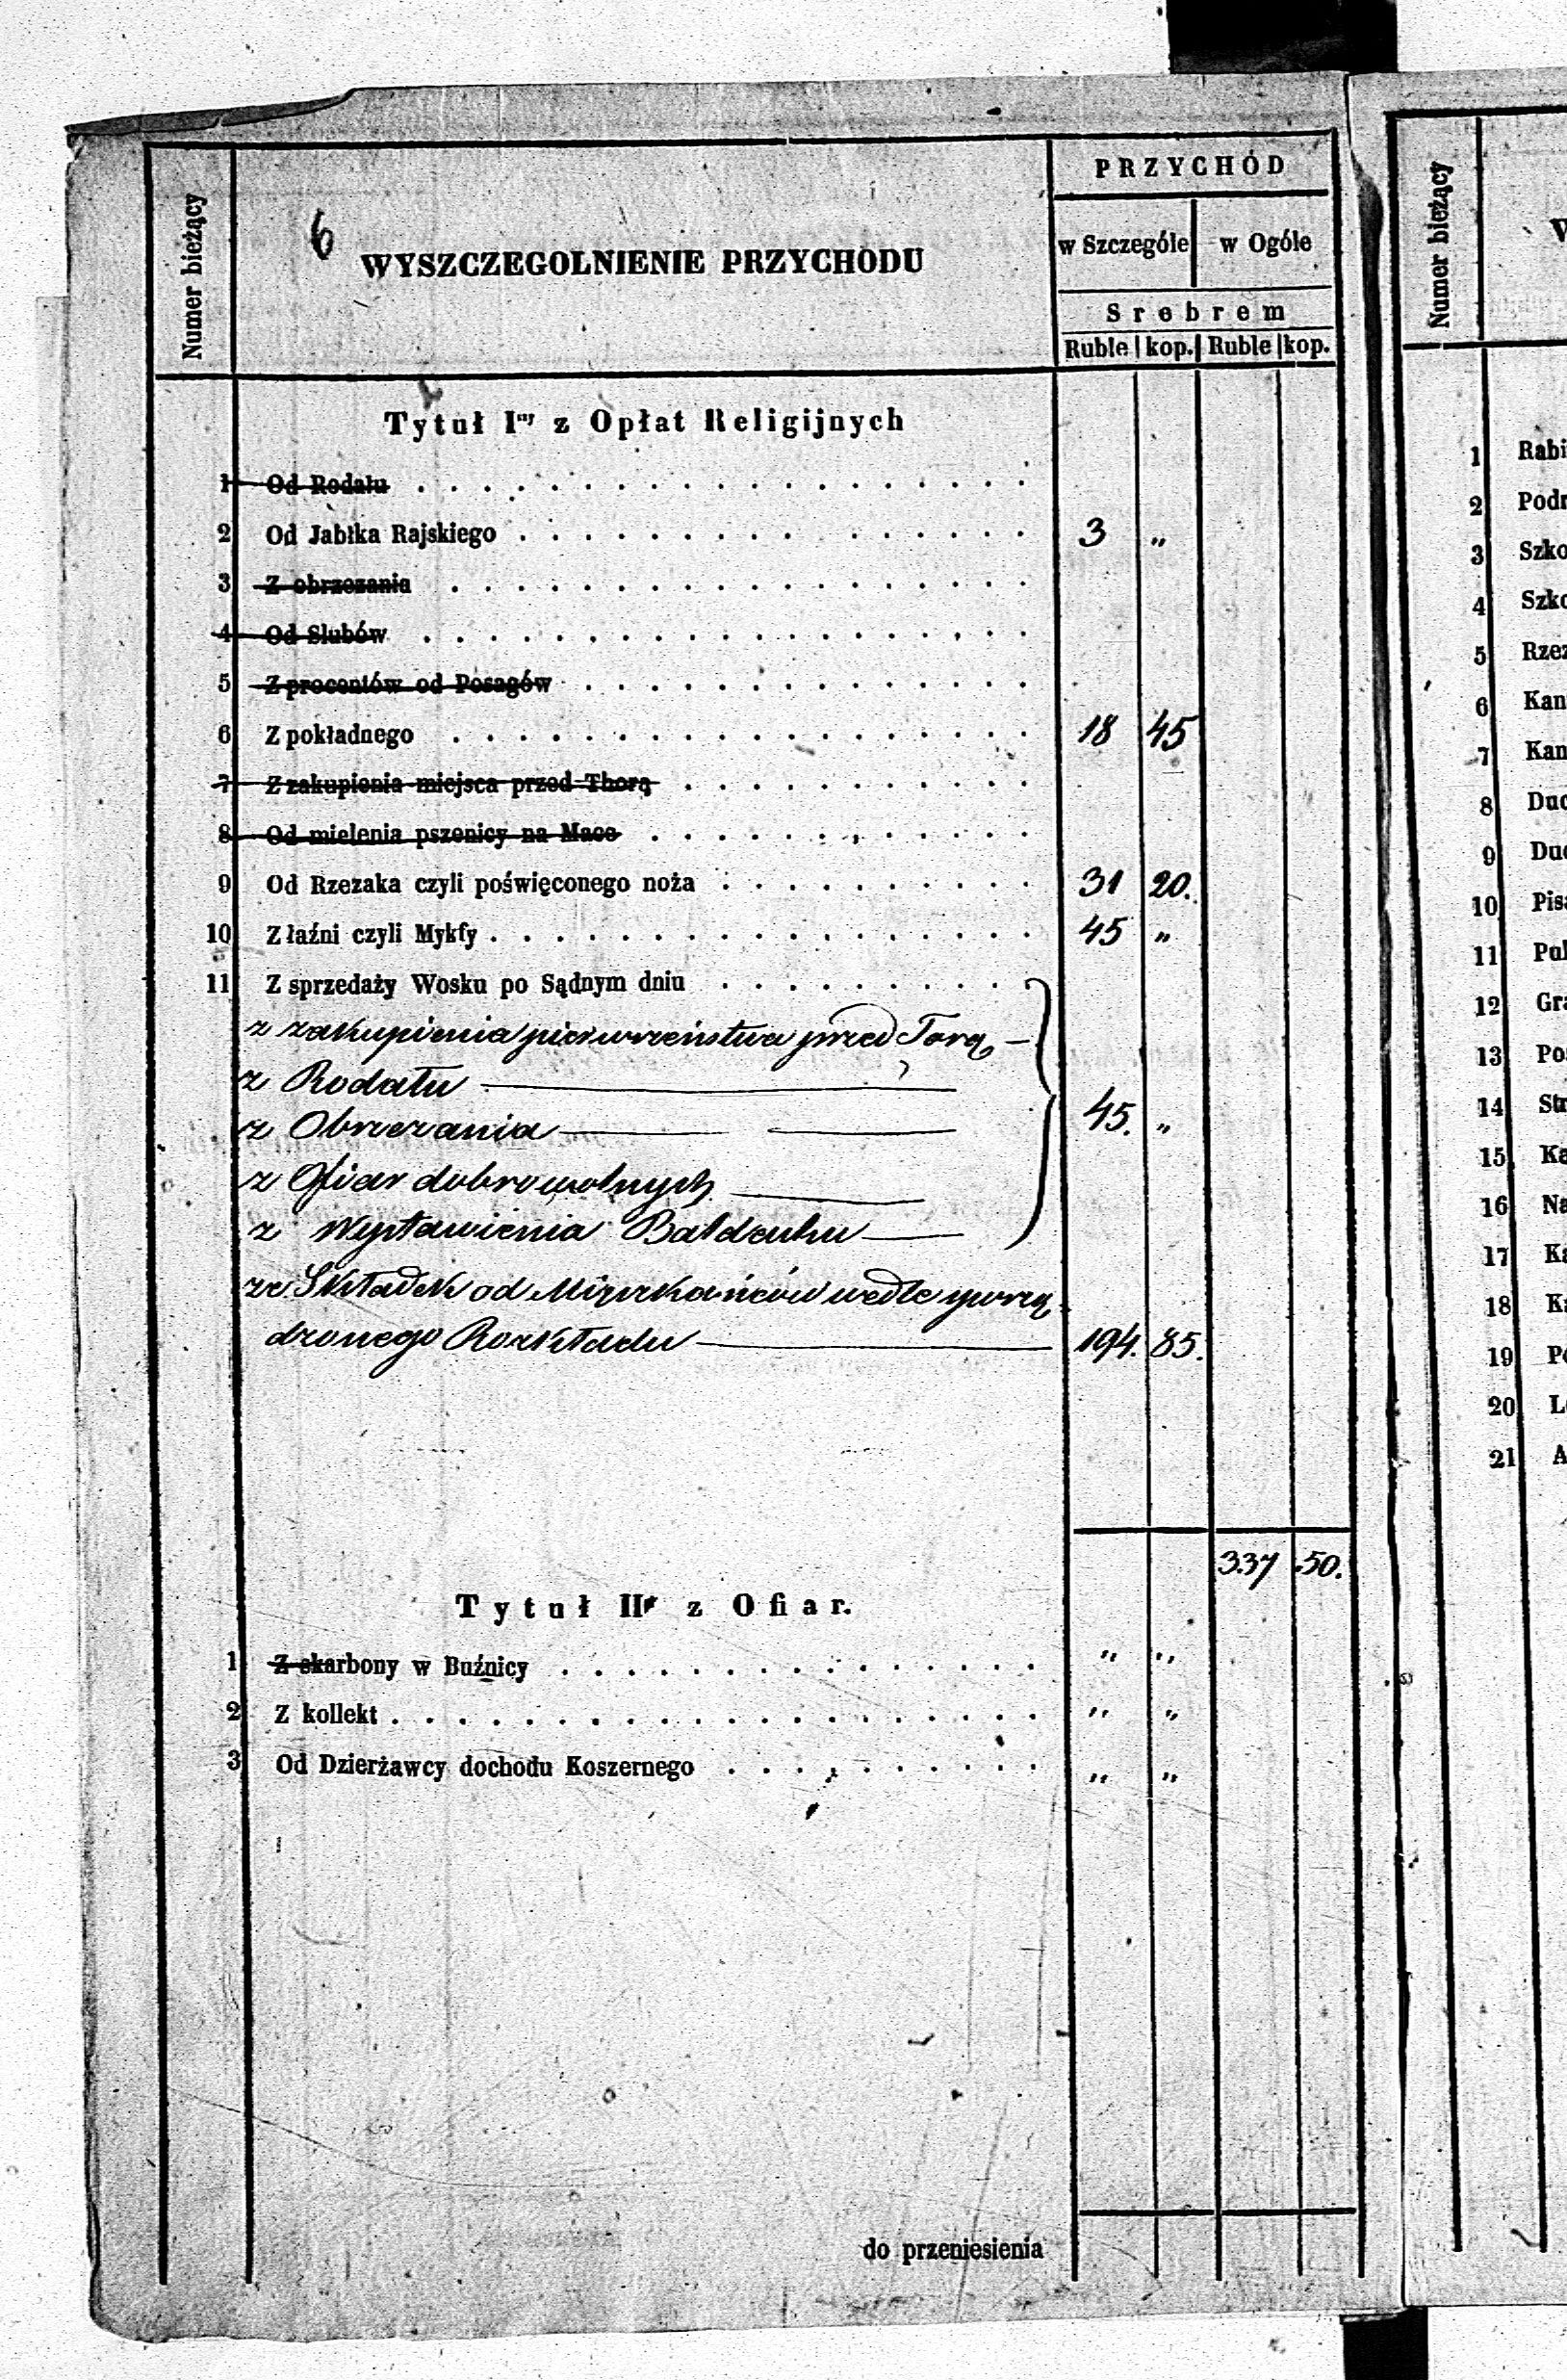 PRZYCHÓD
Numer bieżący
6
WYSZCZEGOLNIENIE PRZYCHODU
w Szczególe w Ogóle
Srebrem
Ruble kop. Ruble kop.
Tytuł I z Opłat Religijnych
1 Od Rodału
2 Od Jabłka Rajskiego 3 „
3 Z obrzezania
4 Od Slubów
5 Z procentów od Posagów
6 Z pokładnego 18 45
7 Z zakupienia miejsca przed Thorą
8 Od mielenia pszenicy na Mace
9 Od Rzezaka czyli poświęconego noża 31 20.
10 Z łaźni czyli Mykfy 45 „
11 Z sprzedaży Wosku po Sądnym dniu
z zakupienia pierwszeństwa przed Torą
z Rodału
z Obrzezania 45. „
z Ofiar dobrowolnych
z Wystawienia
ze Składek od Mieszkańców wedle sporzą
dzonego Rozkładu 194. 85.
337 50.
Tytuł II z Ofiar.
1 Z skarbony w Buźnicy „ „
2 Z kollekt „ „
3 Od Dzierżawcy dochodu Koszernego „ „
do przeniesienia
Numer bieżący
1 Rabi
2 Podr
3 Szko
4 Szko
5 Rzez
6 Kan
7 Kan
8 Duc
9 Duc
10 Pisa
11 Pul
12 Gra
13 Po
14 Str
15 Ka
16 Na
17 Ka
18 K
19 P
20 L
21 A